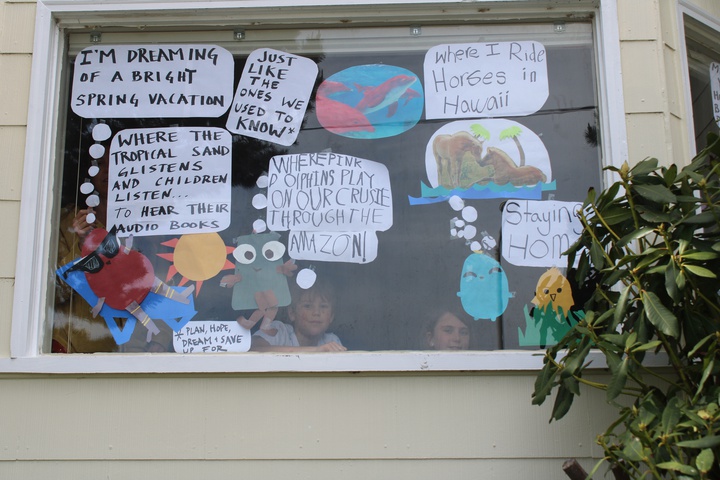 I'M DREAMING
OF A BRIGHT
SPRING VACATION
JUST
LIKE
THE
ONES WE
USED TO
KNOW*
Where I Ride
Horses in
Hawaii
WHERE THE
TROPICAL SAND
GLISTENS
AND CHILDREN
LISTEN...
TO HEAR THEIR
AUDIO BOOKS
WHERE PINK
DOLPHINS PLAY
ON OUR CRUSIE
THROUGH THE
AMAZON!
Staying
Home
*PLAN, HOPE,
DREAM + SAVE
UP FOR